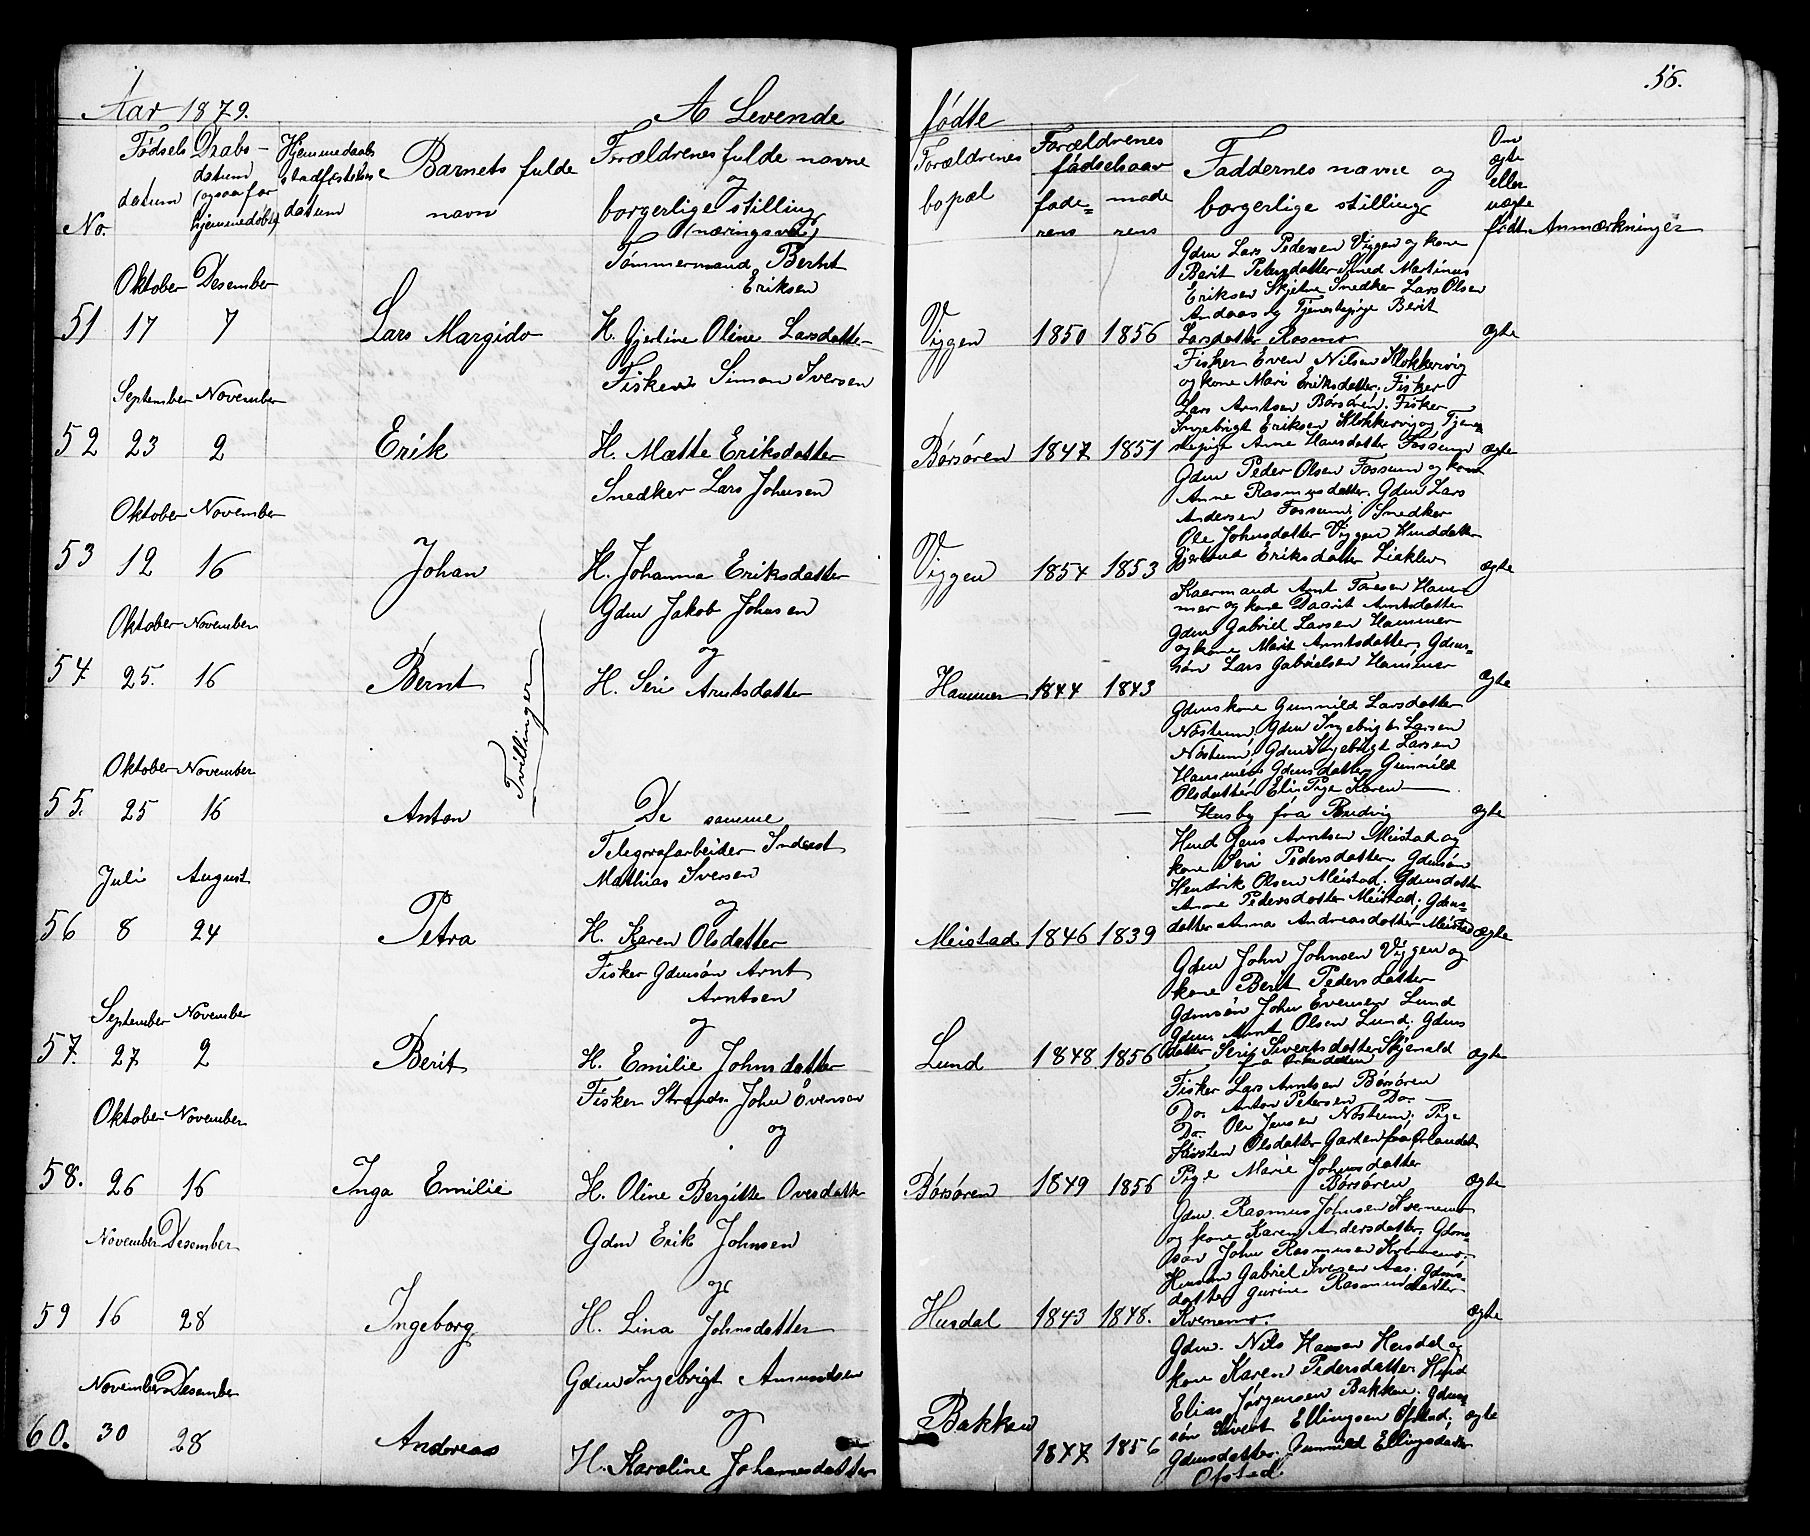 55.
Aar 1879.
A Levende
fødte
No.
Fødsels
datum
Daabs-
datum
(ogsaa for
hjemmedøbt)
Hjemmedaabs
stadfæstelse
datum
Barnets fulde
navn
Forældrenes fulde navne
og
borgerlige stilling
(næringsvei)
Forældrenes
bopæl
Forældrenes
fødselsaar
fade=
rens
mode
rens
Faddernes navne og
borgerlige stilling
Om
ægte
eller
uægte
født
Anmærkninger
Oktober Desember
51 17 7
Lars Margido
Tømmermand Berht
Eriksen
H. Gjertine Oline Larsdatter
Viggen 1850 1856
Gdm Lars Pedersen Viggen og kone
Berit Petersdatter Smed Martinus
Eriksen Skjetne Snedker Lars Olsen
Andaas og Tjenestepige Berit
Larsdatter Rosmo
ægte
September November
52 23 2
Erik
Fisker Simon Iversen
H. Mætte Eriksdatter
Børsøren 1847 1851
Fisker Even Nilsen Klokkervig
og kone Mari Eriksdatter. Fisker
Lars Arntsen Børsøren. Fisker
Ingebrigt Eriksen Klokkervig og Tjene=
stepige Anne Hansdatter Fossum
ægte
Oktober November
53 12 16
Johan
Snedker Lars Johnsen
H. Johanna Eriksdatter
Viggen 1854 1853
Gdm Peder Olsen Fossum og kone
Anne Rasmusdatter. Gdm Lars
Andersen Fossum, Snedker
Ole Johnsdatter Viggen Husdatter
Gjertrud Eriksdatter
ægte
Oktober November
54 25. 16
Bernt
Tvillinger
Gdm Jakob Johnsen
og
H. Seri Arntsdatter
Hammer 1844 1843
Kaarmand Arnt Hammer
og kone Arntsdatter
Gdm Gabriel Larsen Hammer
og kone Marit Arntsdatter, Gdms=
søn Lars Gabrielsen Hammer
ægte
Oktober November
55. 25 16
Anton
De samme
— —
Gdmskone Gunnild Larsdatter
Nostrum, Gdm Ingebrigt Larsen
Nostrum, Gdm Ingebrigt Larsen
Hammer Gdmsdatter Gunnild
Olsdatter Pige Karen
Husby fra
ægte
Juli August
56 8 24
Petra
Telegrafarbeider Inderst
Mathias Iversen
og
H. Karen Olsdatter
Meistad 1846 1839
Husm Jens Arntsen Meistad og
kone Seri Pedersdatter, Gdmsøn
Hendrik Olsen Meistad; Gdmsdatter
Anne Pedersdatter Meistad; Gdms=
datter Anna Andreasdatter Meistad
ægte
September November
57. 27 2
Berit
Fisker Gdmsøn Arnt
Arntsen
og
H. Emilie Johnsdatter
Lund 1848 1856
Gdm John Johnsen Viggen og
kone Berit Pedersdatter
Gdmsøn John Evensen Lund
Gdm. Arnt Olsen Lund; Gdms
datter Seri Sivertsdatter
fra
ægte
Oktober November
58. 26 16
Inga Emilie
Fisker Strands. John Øvensen
og
H. Oline Bergitte Ovesdatter
Børsøren 1849 1856
Fisker Lars Arntsen Børsøren
Do. Anton Petersen Do. —
Do. Ole Jensen Nostrum; Pige
Kirsten Olsdatter Garten fra Ørlandet
Pige Marie Johnsdatter
Børsøren
ægte
November Desember
59 16 28
Ingeborg
Gdm Erik Johnsen
og
H. Lina Johnsdatter
Husdal 1843 1848.
Gdm. Rasmus Johnsen Kvernmo
og kone Karen Andersdatter, Gdms=
søn John Rasmusen Kvernmo.
Husm Gabriel Iversen Aas. Gdms=
datter Gurine Rasmusdatter
Kvernmo.
ægte
November Desember
60. 30 28
Andreas
Gdm Ingebrigt Amundsen
og
H. Karoline Johannesdatter
Bakken
1847 1856
Gdm. Nils Hansen Husdal og
kone Karen Pedersdatter. Husm
Elias Jørgensen Bakken. Gdms=
søn Sivert Ellingsen Ofstad.
Gdmsdatter. Gunnild Ellingsdatter
Ofstad.
ægte